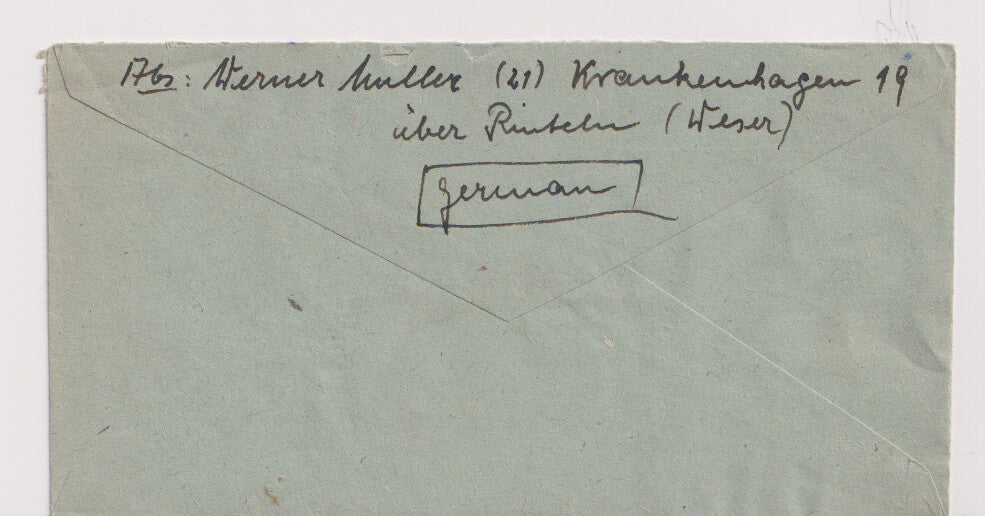 Abs: Werner Muller (21) Krankenhagen 19
über Rinteln (Weser)
German